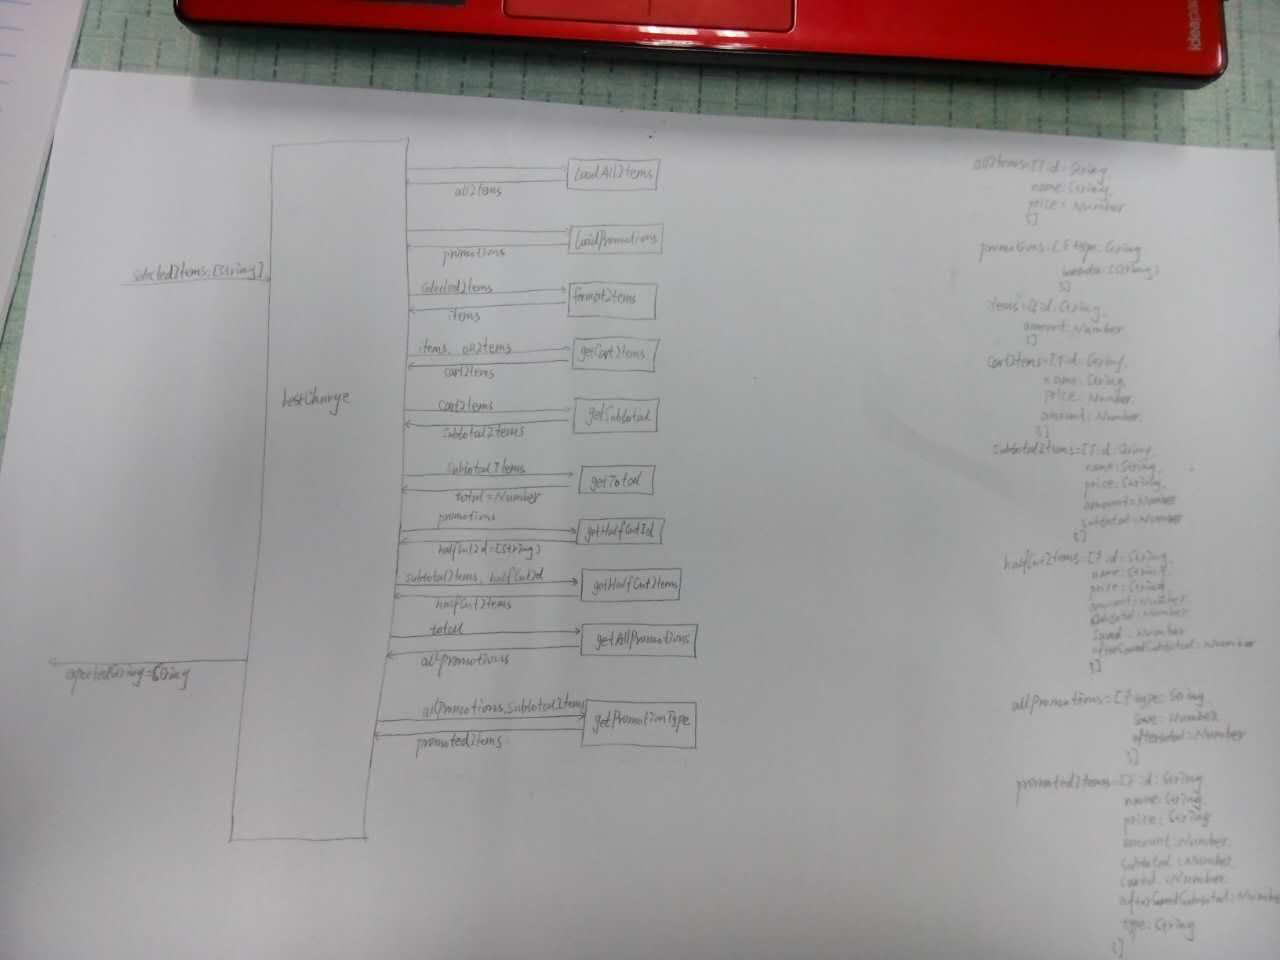 ideapad
loadAllItems
allItems
loadPromotions
promotions
selectedItems:[String]
selectedItems
formatItems
items
items, allItems
getCartItems
cartItems
bestCharge
cartItems
getSubtotal
subtotalItems
subtotalItems
getTotal
total=Number
promotions
getHalfCutId
halfCutId=[String]
subtotalItems, halfCutId
getHalfCutItems
halfCutItems
total
getAllPromotions
allPromotions
expectedString=String
allPromotions,subtotalItems
getPromotionType
promotedItems
allItems=[{id:String
name:String
price:Number
}]
promotions=[{type:String
[String]
}]
items=[{id:String,
amount:Number
}]
cartItems=[{id:String,
name:String,
price:Number,
amount:Number,
}]
subtotalItems=[{id:String,
name:String,
price:String,
amount:Number
subtotal:Number
}]
halfCutItems=[{id:String,
name:String,
price:String,
amount:Number
subtotal:Number
saved:Number
afterSavedSubtotal:Number
}]
allPromotions=[{type:String,
save:Number
:Number
}]
promotedItems=[{id:String
name:String,
price:String
amount:Number
subtotal:Number
saved:Number
afterSavedSubtotal:Number
type:String
}]